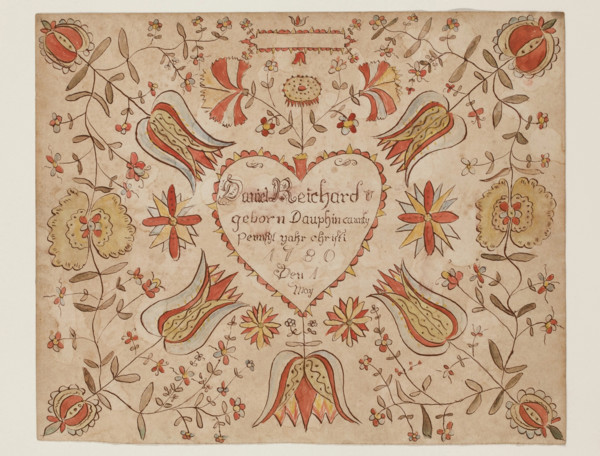 Daniel Reichard
geborn Dauphin caunty
Pensyl yahr christi
1780
Den 1
May